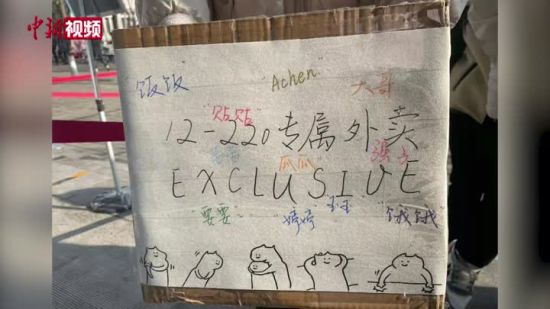 中新视频
"饭饭" "Achen" 大哥
"贴贴"
12-220 专属外卖
瓜瓜
EXCLUSIVE
"要要" "婷婷" "饿饿"